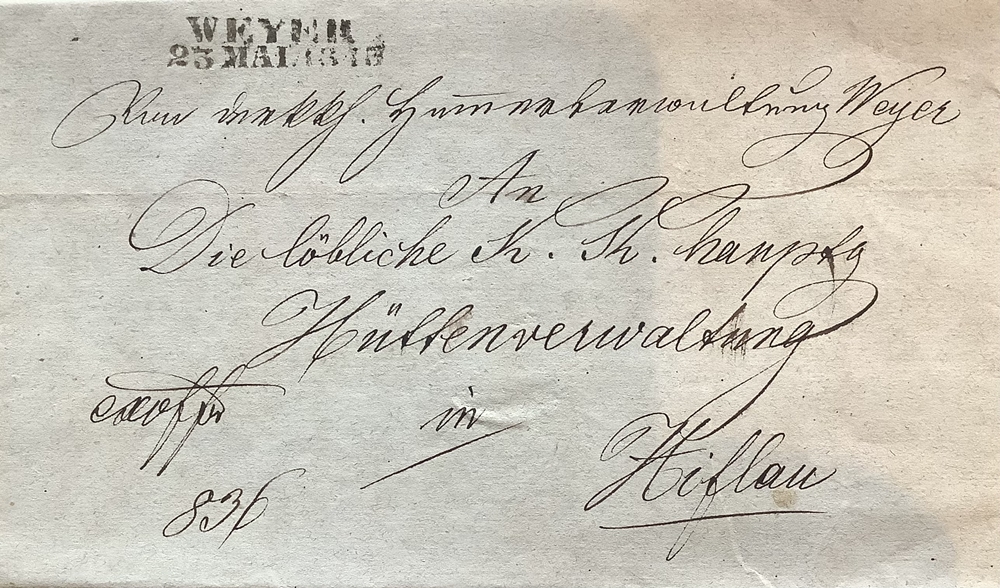 WEYER
23 MAI
Von der kkh. Hammerverwaltung Weyer
An
Die löbliche K. K.
Hüttenverwaltung
in
Hiflau
836